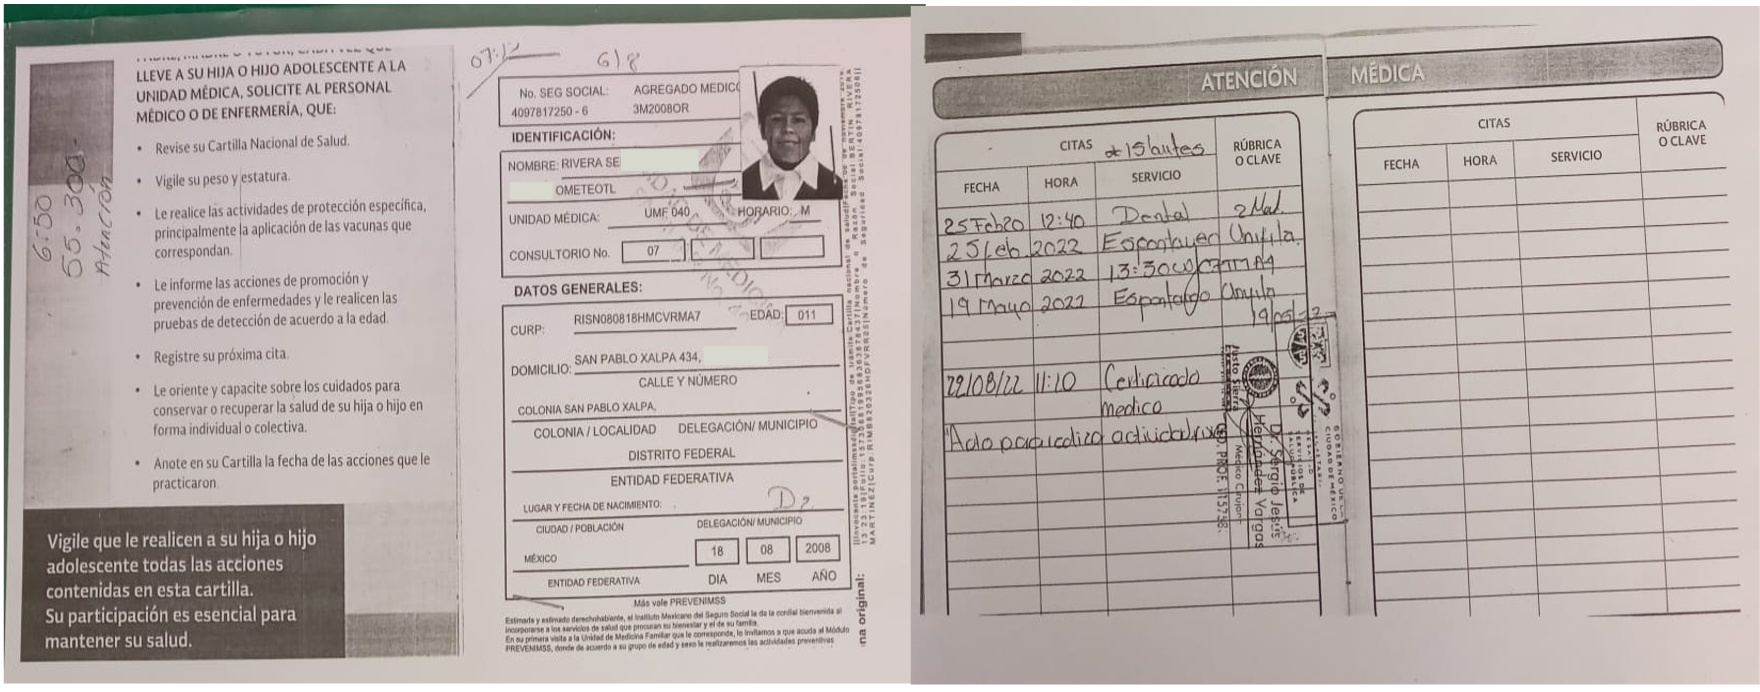 LLEVE A SU HIJA O HIJO ADOLESCENTE A LA
UNIDAD MÉDICA, SOLICITE AL PERSONAL
MÉDICO O DE ENFERMERÍA, QUE:
• Revise su Cartilla Nacional de Salud.
• Vigile su peso y estatura.
• Le realice las actividades de protección específica,
principalmente la aplicación de las vacunas que
correspondan.
• Le informe las acciones de promoción y
prevención de enfermedades y le realicen las
pruebas de detección de acuerdo a la edad.
• Registre su próxima cita.
• Le oriente y capacite sobre los cuidados para
conservar o recuperar la salud de su hija o hijo en
forma individual o colectiva.
• Anote en su Cartilla la fecha de las acciones que le
practicaron.
Vigile que le realicen a su hija o hijo
adolescente todas las acciones
contenidas en esta cartilla.
Su participación es esencial para
mantener su salud.
6:50
55.300.-
Atención
6/8
No. SEG SOCIAL: AGREGADO MEDICO
4097817250 - 6 3M2008OR
IDENTIFICACIÓN:
NOMBRE: RIVERA SE
OMETEOTL
UNIDAD MÉDICA: UMF 040 HORARIO: M
CONSULTORIO No. 07
DATOS GENERALES:
CURP: RISN080818HMCVRMA7 EDAD: 011
DOMICILIO: SAN PABLO XALPA 434,
CALLE Y NÚMERO
COLONIA SAN PABLO XALPA,
COLONIA / LOCALIDAD DELEGACIÓN/ MUNICIPIO
DISTRITO FEDERAL
ENTIDAD FEDERATIVA
LUGAR Y FECHA DE NACIMIENTO:
CIUDAD / POBLACIÓN DELEGACIÓN/ MUNICIPIO
MÉXICO 18 08 2008
ENTIDAD FEDERATIVA DIA MES AÑO
Más vale PREVENIMSS
Estimada y estimado derechohabiente, el Instituto Mexicano del Seguro Social le da la cordial bienvenida al
incorporarse a los servicios de salud que procuran su bienestar y el de su familia.
En su primera visita a la Unidad de Medicina Familiar que le corresponde, lo invitamos a que acuda al Módulo
PREVENIMSS, donde de acuerdo a su grupo de edad y sexo le realizaremos las actividades preventivas
na original:
ATENCIÓN MÉDICA
CITAS * 15 antes RÚBRICA
O CLAVE
FECHA HORA SERVICIO
25 Feb 20 12:40 Dental
25 feb. 2022
31 Marzo 2022 13:30
19 Mayo 2022
22/08/22 11:20 Certificado
medico
CITAS RÚBRICA
O CLAVE
FECHA HORA SERVICIO
Justo Sierra
Médico Cirujano
Dr. Sergio Jesús
Hernández Vargas
CIUDAD DE MÉXICO